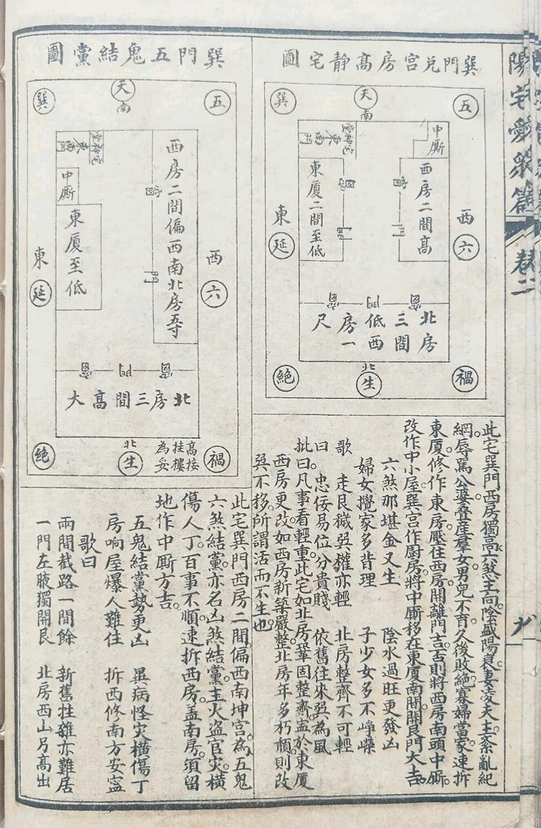 陽宅愛衆篇
卷二
九
巽門兌宮房高靜宅圖
天
南
巽
五
中廁
東南門
東厦二間至低
西房二間高
東
延
西
六
門
窗
北房三間西一房低尺
絕
北
生
禍
此宅巽門西房獨高六煞主高陰盛陽衰妻奪夫主紊亂紀
綱辱罵公婆叠產羣女男兒不育久後敗絕寡婦當家速拆
東厦修作東房壓住西房開離門吉否則將西房南頭中廁
改作中小屋巽宮作廚房將中廁移在東厦南間開艮門大吉
六煞那堪金又生 陰水過旺更發凶
婦女攬家多背理 子少女多不崢嶸
歌 走艮
亦輕 北房整齊不可輕
曰 忠佞易位分貴賤 依舊往來惡為風
批曰凡事看輕重此宅如北房鞏固整齊高於東厦
西房更改如西房新築嚴整北房年多朽頹則改
巽不移所謂活而不生也
巽門五鬼結黨圖
天
南
巽
五
中廁
東厦至低
西房二間偏西南北房
東
延
西
六
門
窗
北房三間高大
絕
北
生
禍
高接
挂樓
為妥
此宅巽門西房二間偏西南坤宮為五鬼
六煞結黨亦名凶煞結黨主火盜官灾橫
傷人丁百事不順速拆西房蓋南房須留
地作中廁方吉
五鬼結黨勢更凶 異病怪灾橫傷丁
房响屋爆人難住 拆西修南方安寧
歌曰
兩間截路一間餘 新舊拄雛亦難居
一門左腋獨開艮 北房西山另高出